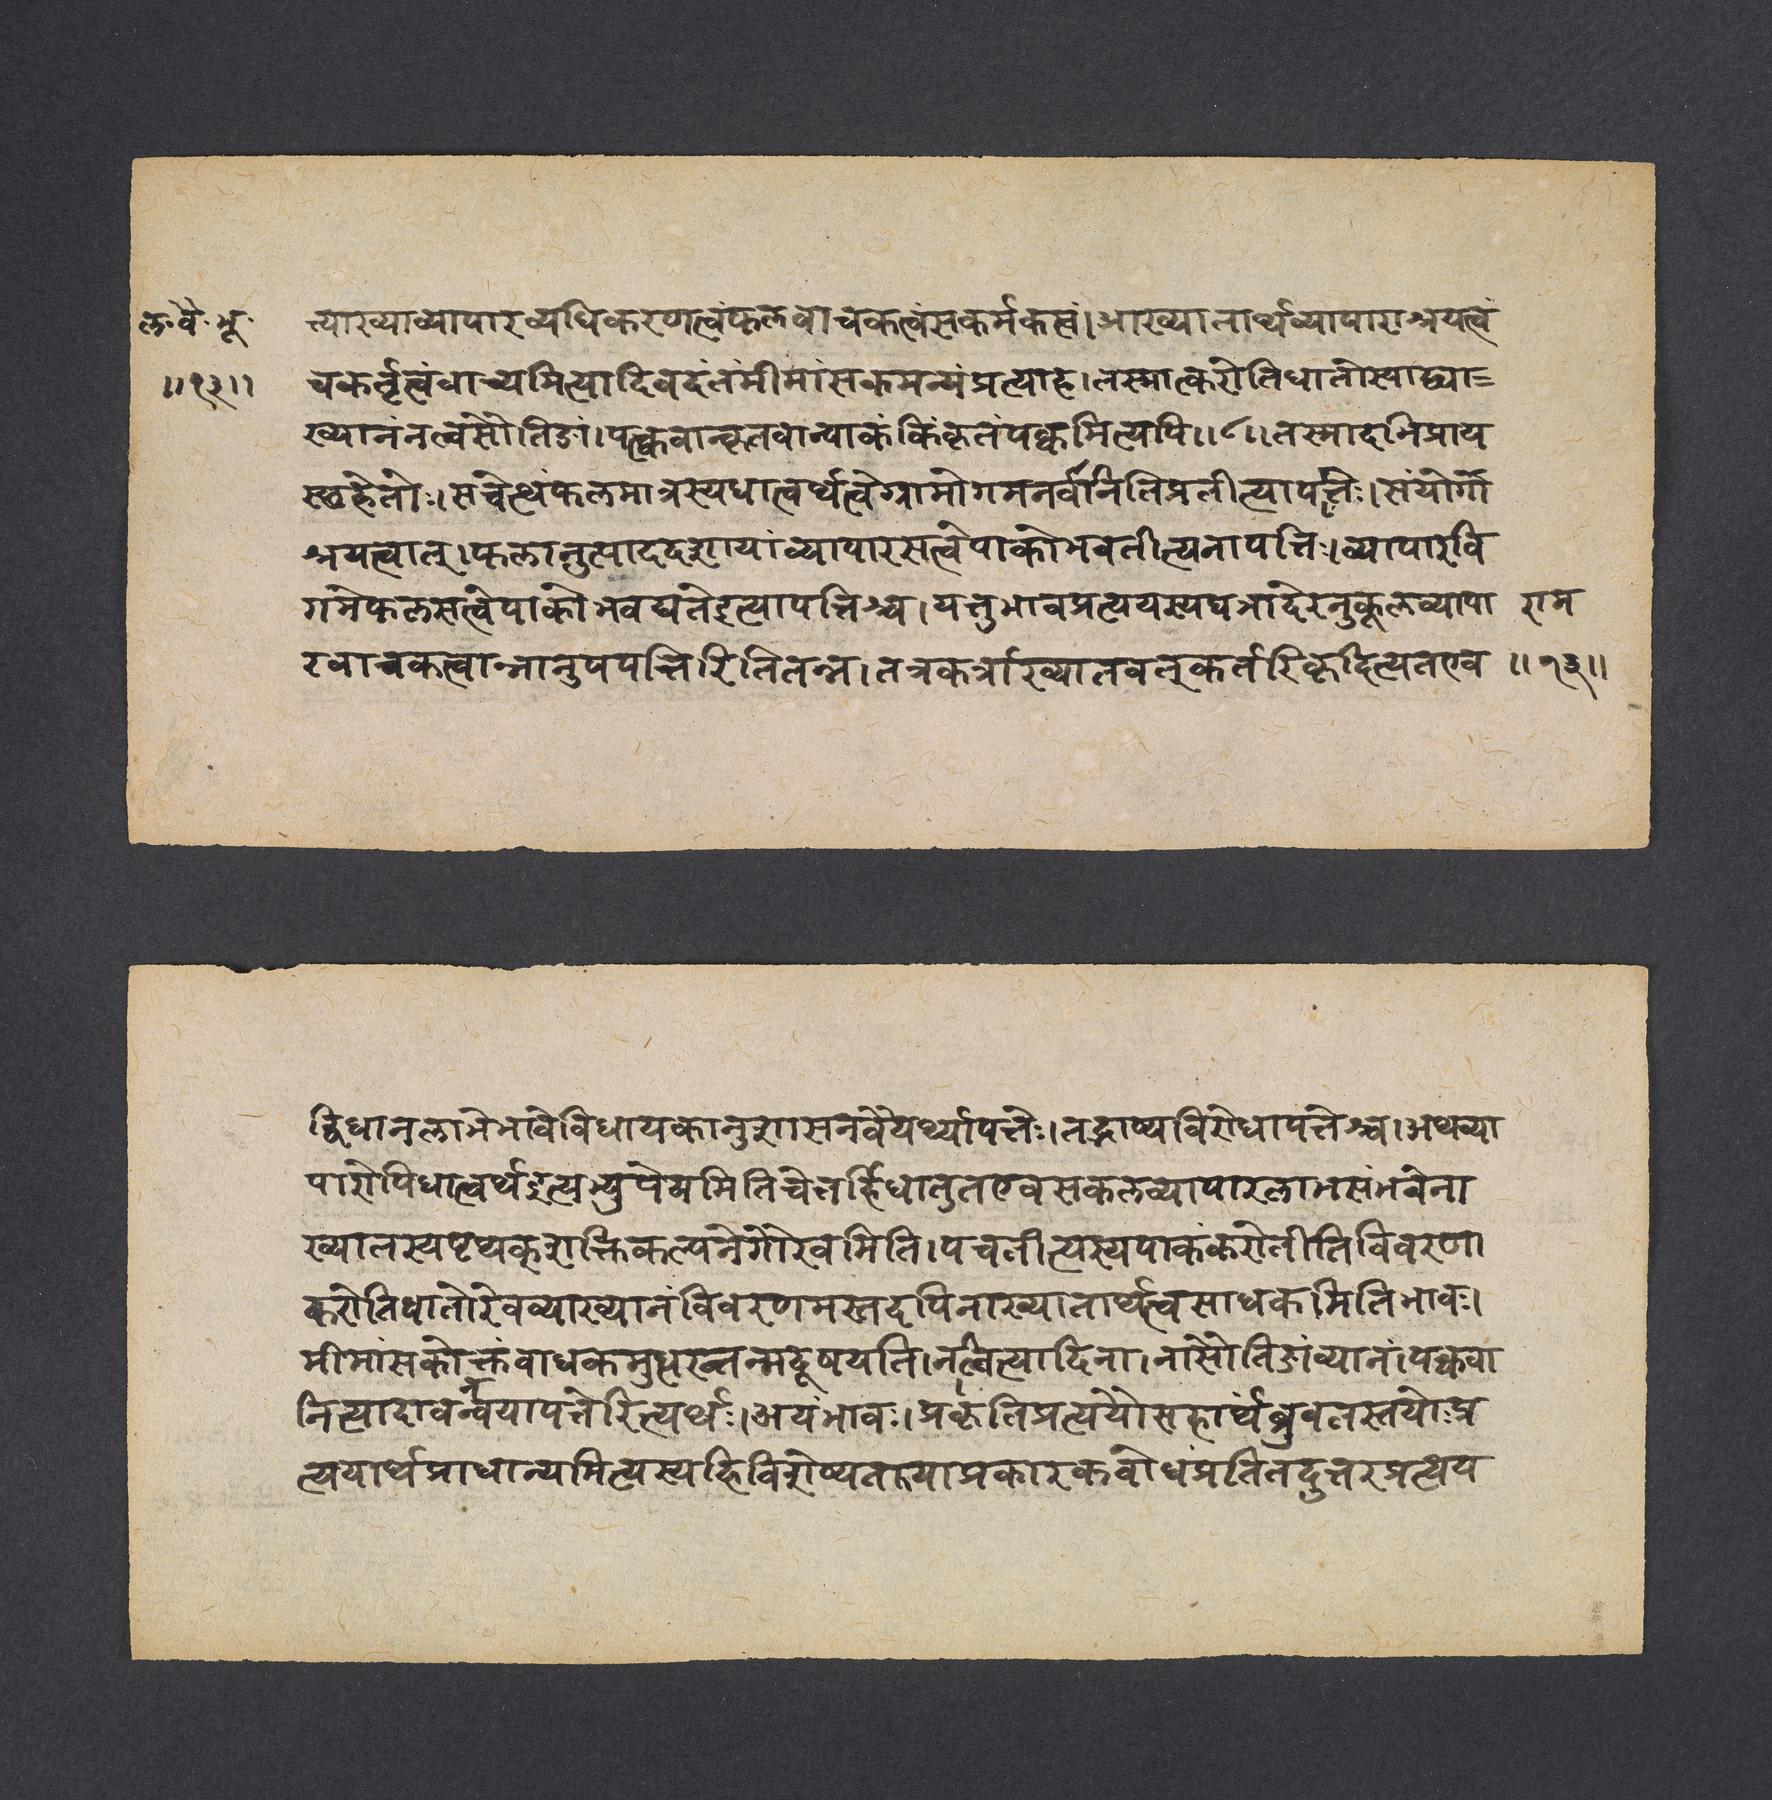 ल॰वै॰भू॰
॥१३॥
त्याख्याव्यापारव्यधिकरणत्वंफलवाचकत्वंसकर्मकत्वं।आख्यातार्थव्यापाराश्रयत्वं
चकर्तृत्वंवाच्यमित्यादिवदंतंमीमांसकमन्यंप्रत्याह।तस्मात्करोतिधातोस्याद्व्या=
ख्यानंनत्वसौतिङां।पक्ववान्कृतवान्पाकंकिंकृतंपक्वमित्यपि॥८॥तस्मादभिप्राय
स्छहेतोः।सचेत्थंफलमात्रस्यधात्वर्थत्वेग्रामोगमनर्वानितिप्रतीत्यापत्तेः।संयोर्गो
श्रयत्वात्।फलानुत्पाददशायांव्यापारसत्वेपाकोभवतीत्यनापत्तिः।व्यापारवि
गमेफलसत्वेपाकोभवद्यतेइत्यापत्तिश्च।यत्तुभावप्रत्ययस्यघञादेरनुकूलव्यापा
रवाचकत्वान्नानुपपत्तिरितितन्न।तत्रकर्त्राख्यातवत्कर्तरिकृदित्यतएव
राम
॥१३॥
द्विधानलाभेभावेविधायकानुशासनवैयर्थ्यापत्तेः।तद्भाष्यविरोधापत्तेश्च।अथव्या
पारोपिधात्वर्थइत्यभ्युपेयमितिचेत्तर्हिधातुतएवसकलव्यापारलाभसंभवेना
ख्यातस्यपृथक्शक्तिकल्पनेगौरवमिति।पचतीत्यस्यपाकंकरोतीतिविवरणा
करोतिधातोरेवव्याख्यानंविवरणमस्तदपिनाख्यातार्थत्वसाधकमितिभावः।
मीमांसकोक्तंबाधकमुधृखतन्मदूषयति।नत्वित्यादिना।नासौतिङांव्यानं।पक्ववा
नित्यादावनन्वयापत्तेरित्यर्थः।अयंभावः।प्रकृतिप्रत्ययौसहार्थंब्रुवतस्तयोःप्र
त्ययार्थप्राधान्यमित्यस्यहिविशेष्यतयाप्रकारकबोधंप्रतितदुत्तरप्रत्यय